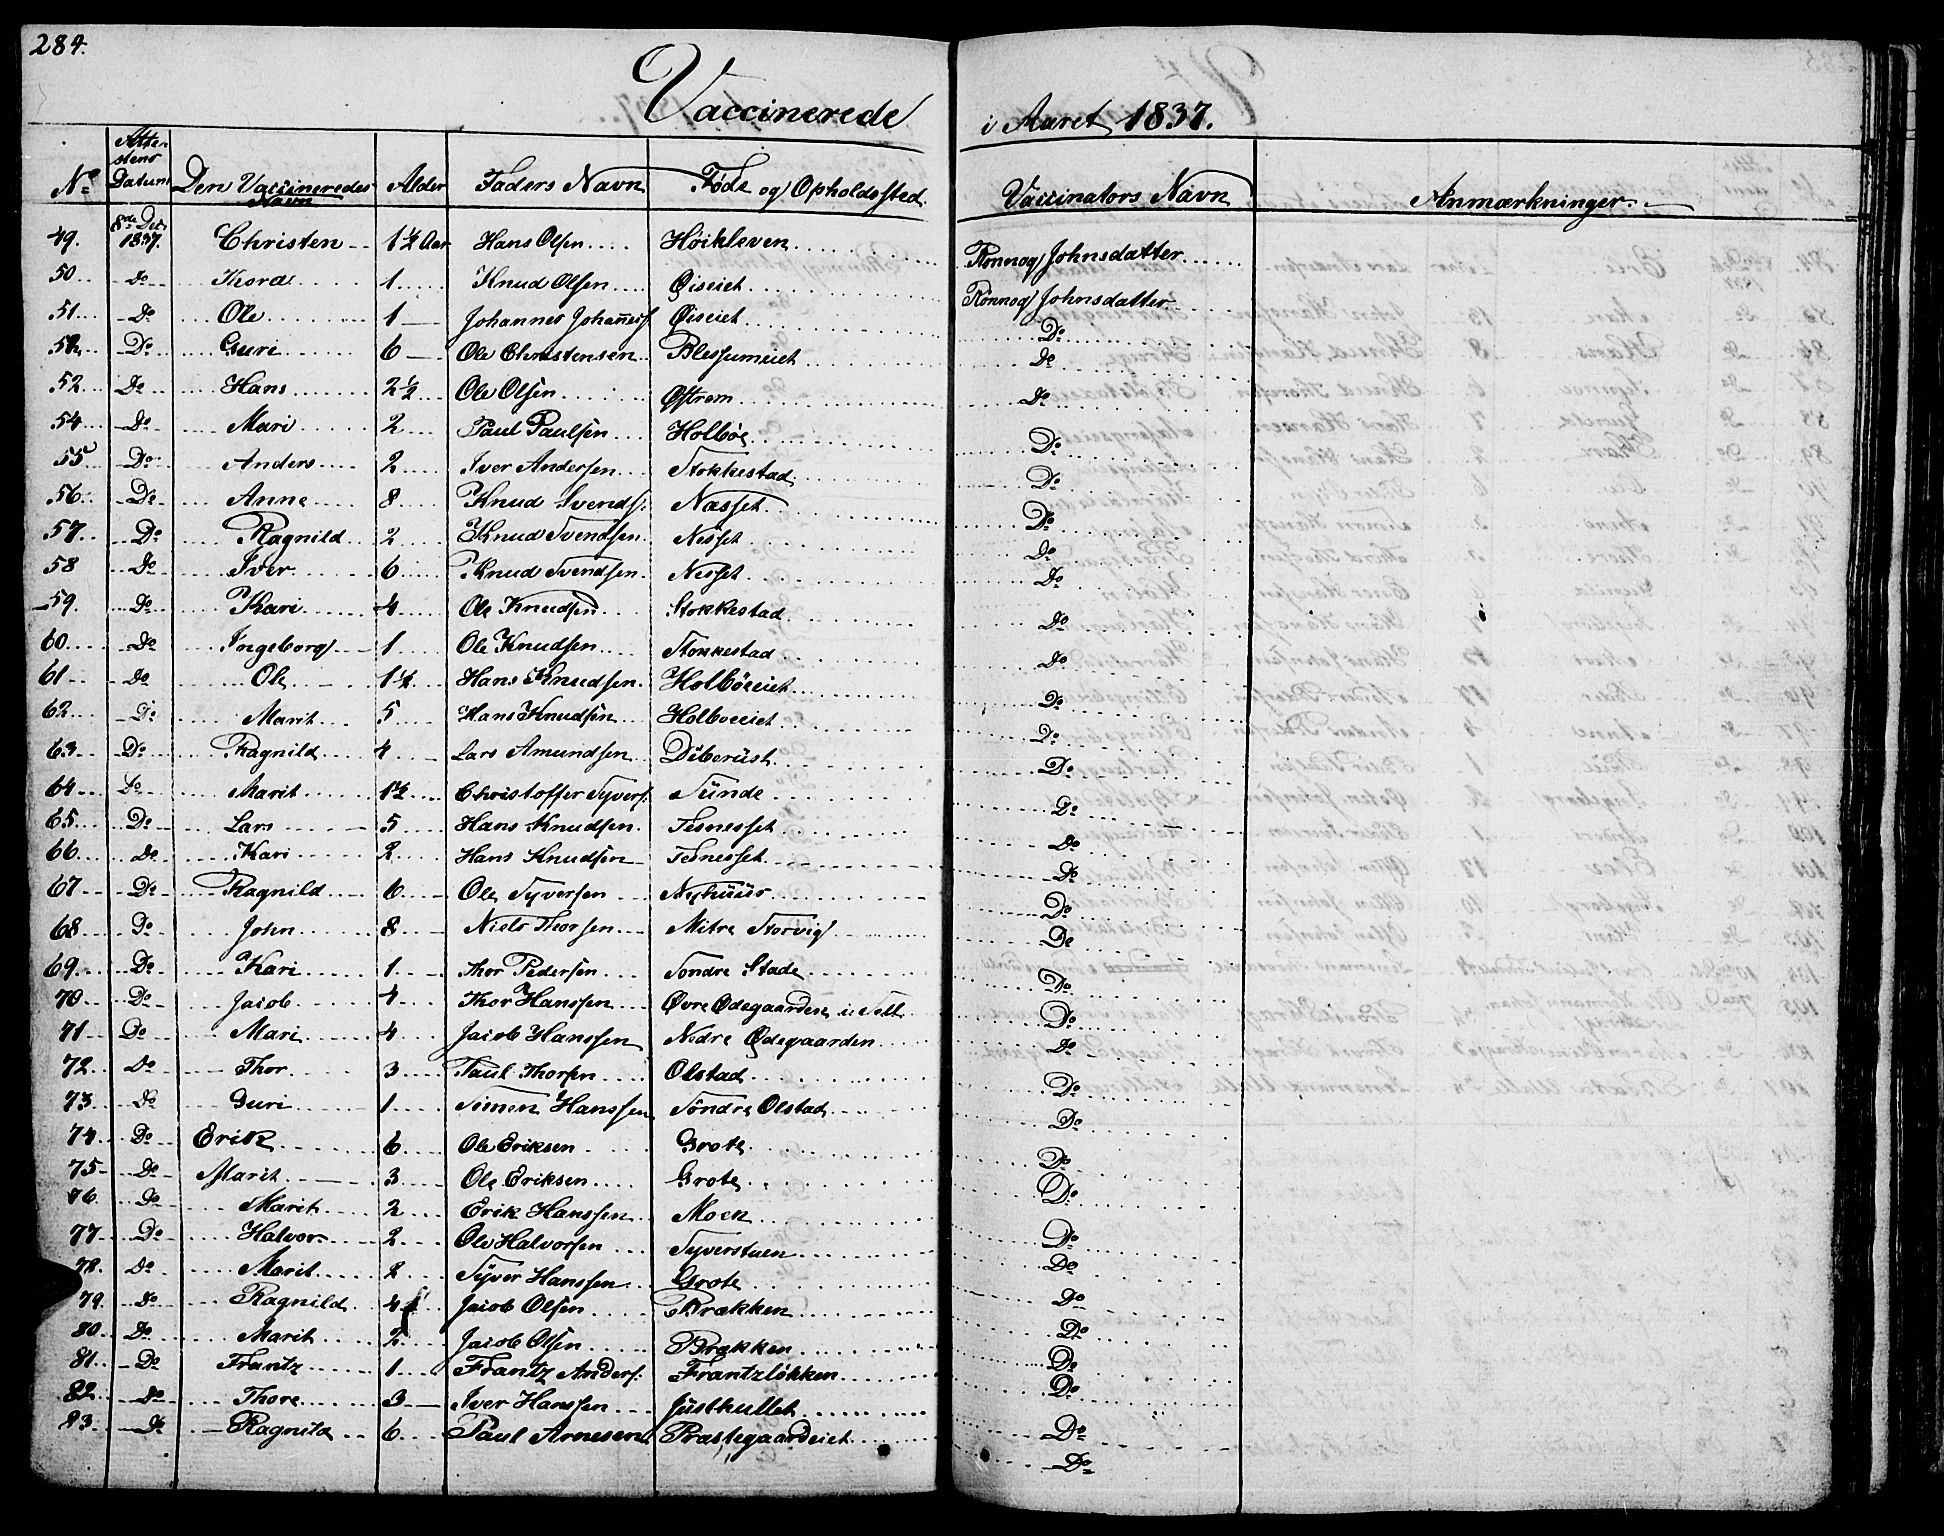 284.
Vaccinerede i Aaret 1837.
No Attestens Datum Den Vaccineredes Navn Alder Faders Navn Føde og Opholdssted. Vaccinators Navn Anmærkninger.
49. 8de Dec. 1837. Christen 1½ Aar Hans Olsen Høikleven Rønnog Johnsdatter
50 Do Thora 1 Knud Olsen Øiseiet Rønnog Johnsdatter
51 Do Ole 1 Johannes Johannesf. Øiseiet Do
52 Do Guri 6 Ole Christensen Blessumeiet Do
52 Do Hans 2½ Ole Olsen Øfstrem Do
54 Do Mari 2 Paul Paulsen Holbøe Do
55 Do Anders 2 Iver Andersen Stokkestad Do
56 Do Anne 8 Knud Svends. Næsset Do
57 Do Ragnild 2 Knud Svendsen Nesset Do
58 Do Iver 6 Knud Svendsen Nesset Do
59. Do Kari 4 Ole Knudsen Stokkestad Do
60 Do Ingeborg 1 Ole Knudsen Stokkestad Do
61 Do Ole 1½ Hans Knudsen Holbøeiet Do
62 Do Marit 5 Hans Knudsen Holboeiet Do
63 Do Ragnild 4 Lars Amundsen Diberüst Do
64 Do Marit 1½ Christoffer Syvers. Sünde Do
65 Do Lars 5 Hans Knudsen Tesnesset Do
66 Do Kari 2 Hans Knudsen Tesnesset Do
67 Do Ragnild 6 Ole Syversen Nyhüüs Do
68 Do John 8 Niels Thorsen Mitre Storvig Do
69 Do Kari 1 Thor Pedersen Søndre Stade Do
70 Do Jacob 4 Thor Hanssen Øvre Ødegaarden i Sell Do
71 Do Mari 4 Jacob Hanssen Nedre Ødegaarden Do
72 Do Thor 3 Paul Thorsen Olstad Do
73 Do Guri 1 Simen Hanssen Søndre Olstad Do
74 Do Erik 6 Ole Eriksen Grote Do
75 Do Marit 3 Ole Eriksen Grote Do
76 Do Marit 2 Erik Hanssen Moen Do
77 Do Halvor 2 Ole Halvorsen Syverstuen Do
78 Do Marit 2 Syver Hanssen Grote Do
79. Do Ragnild 4 Jacob Olsen Brækken Do
80 Do Marit 2 Jacob Olsen Brækken Do
81 Do Frantz 1 Frantz Anders. Frantzløkken Do
82 Do Thore 3 Iver Hanssen Jüsthullet Do
83 Do Ragnild 6 Paul Arnesen Præstegaardeiet Do